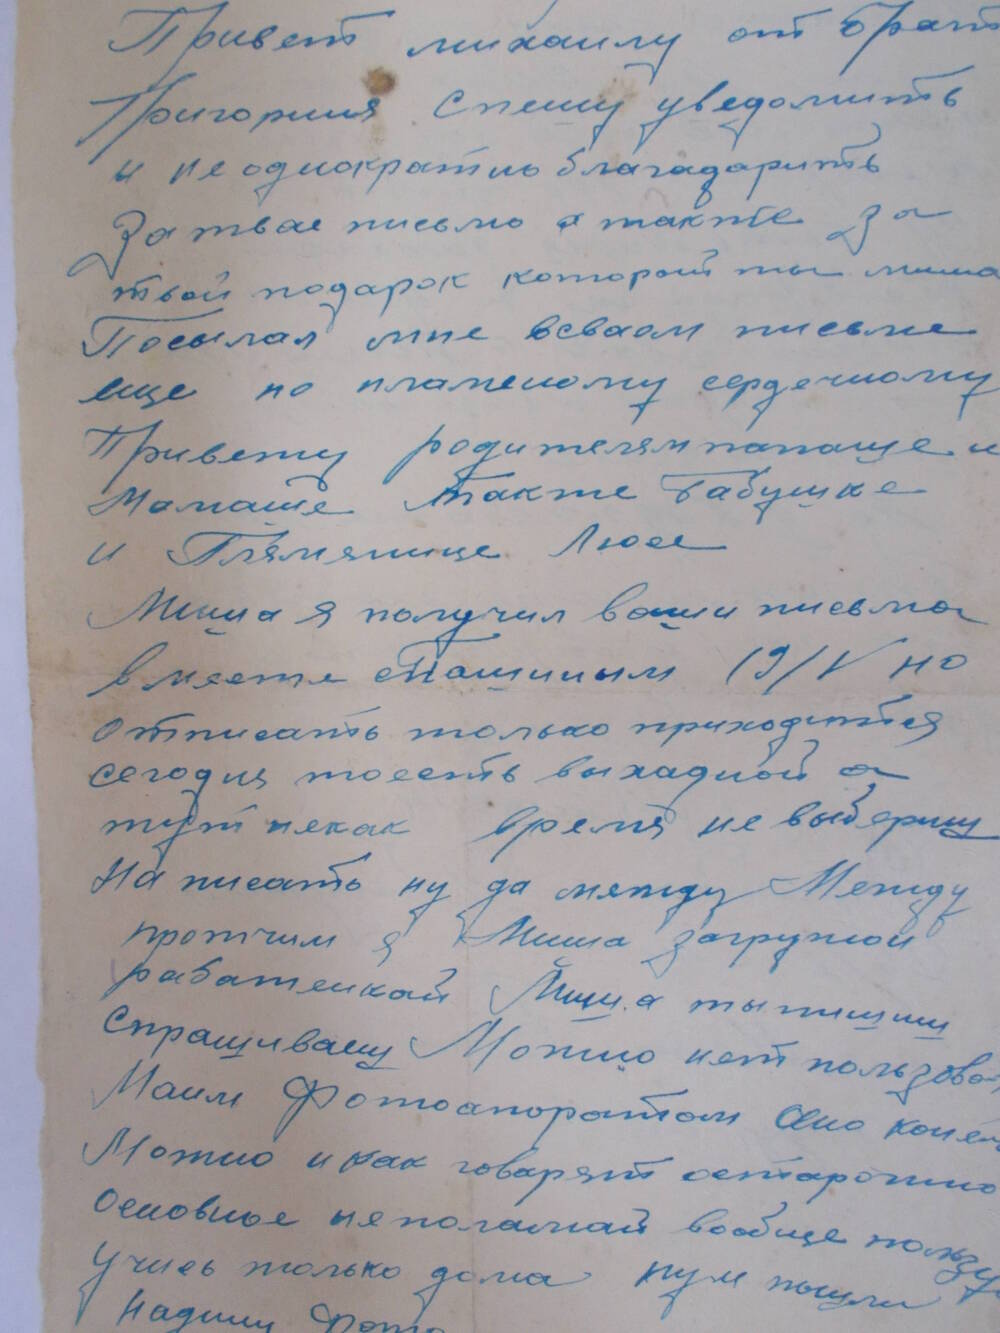 Привет михаилу от брат
Григория Спешу уведомить
и не однократно благадарить
За твае письмо а также за
твой подарок которой ты миша
Посылал мне всваом письме
еще по пламеному сердечному
Привету родителям папаше и
Мамаше также бабушке
и Племянице Люсе
Миша я получил ваши письма
вместе с Пашиным 19/V но
отписать только приходится
сегодня тоесть выхадной а
тут некак время не выберишь
Написать ну да между Между
протчим я Миша загружон
рабатенкай Миша ты пишиш
Спрашиваеш Можно нет пользова
Маим Фотоапоратом Оно конеш
Можно и как говарят осторожно
Основное неполамай вообще пользу
учись только дома
Надиту Фото